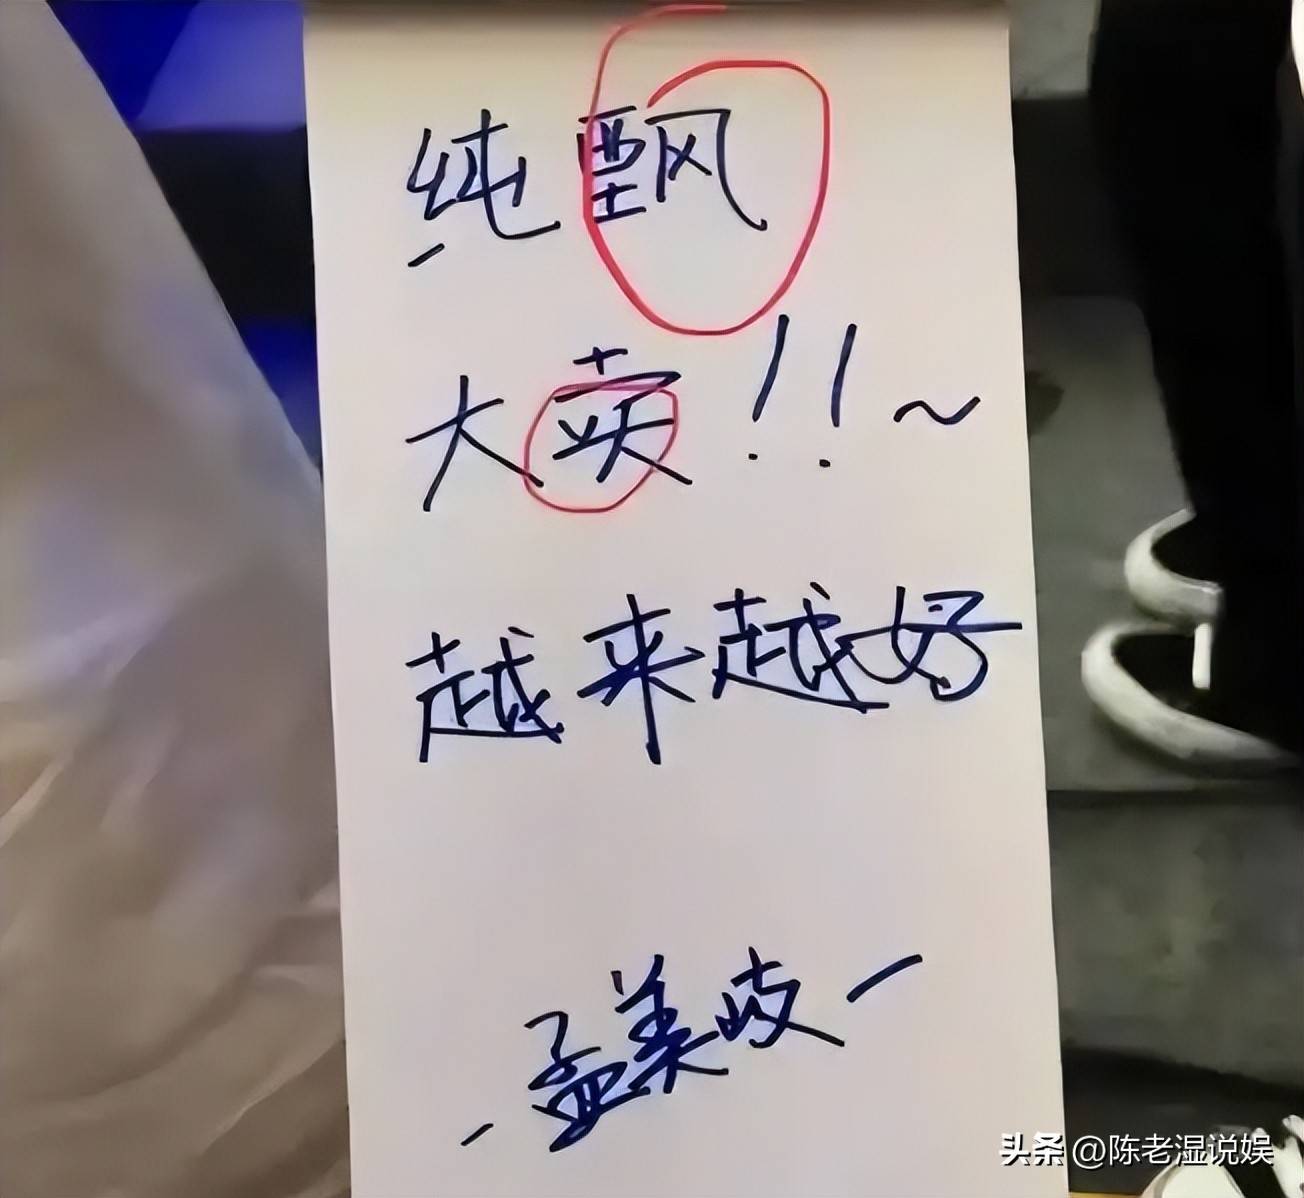 纯飘
大卖!!~
越来越好
孟美岐
头条 @陈老湿说娱